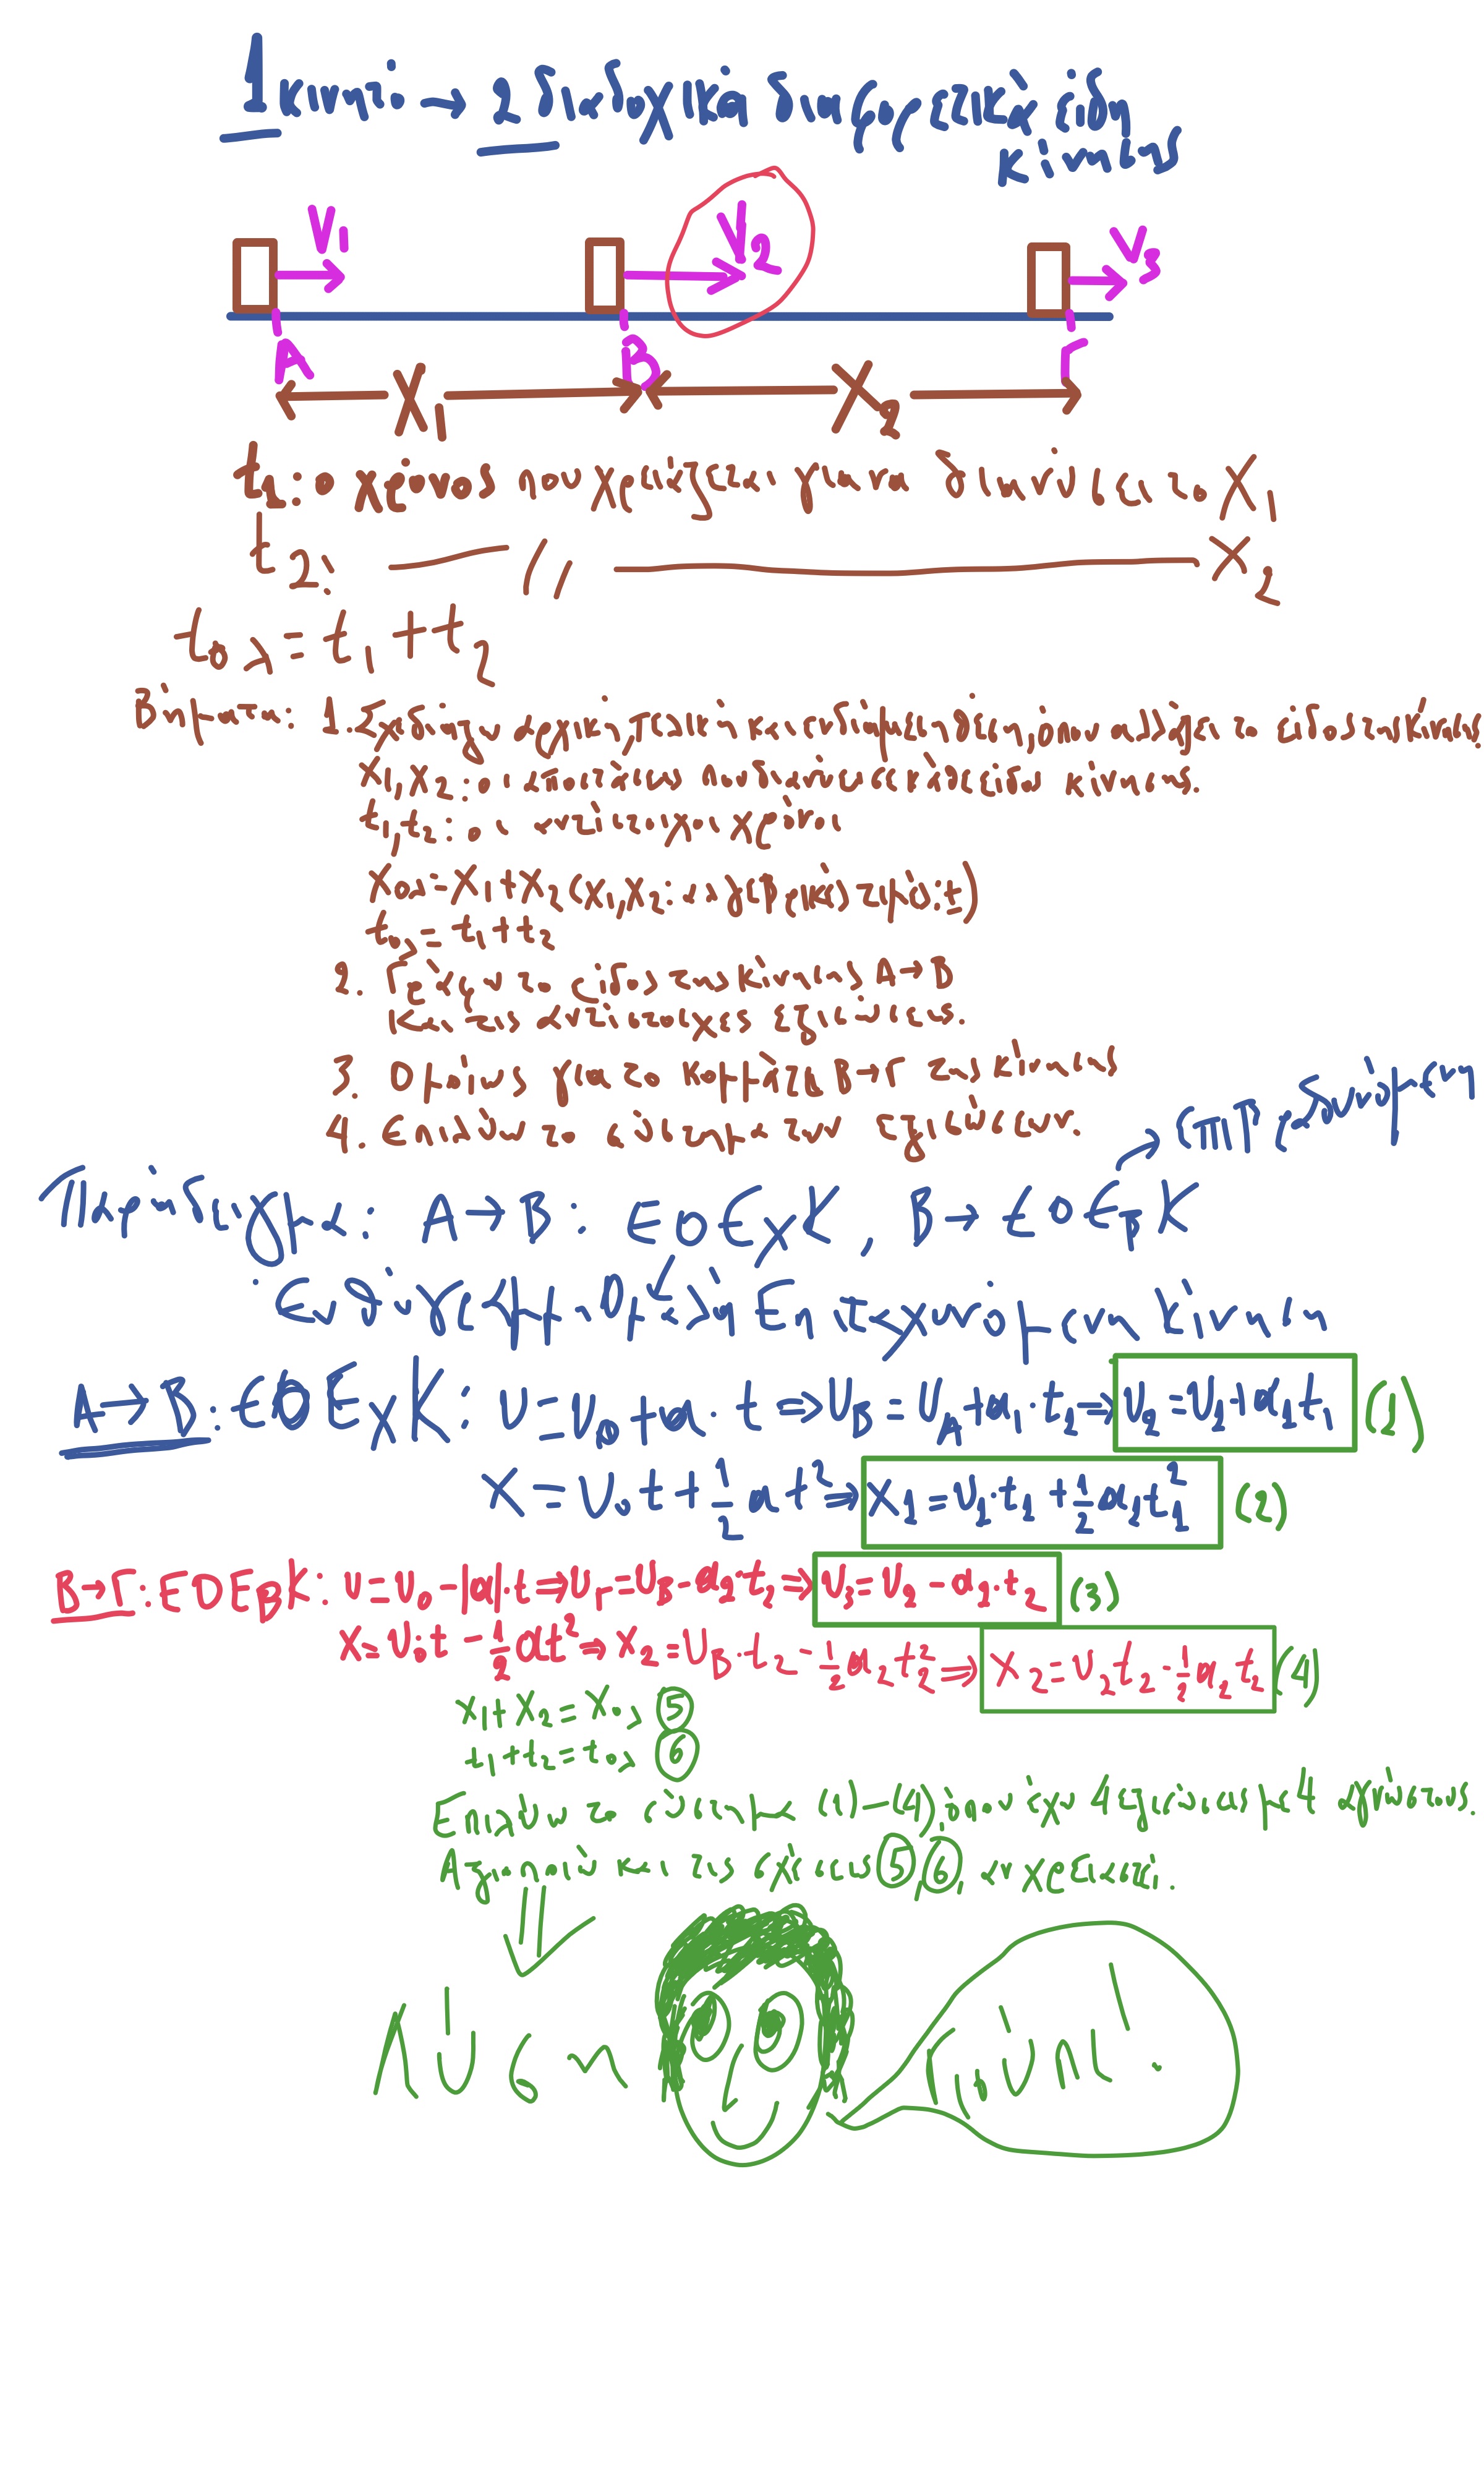 1 κινητό → 2 διαδοχικά διαφορετικά είδη
κίνησης
V₁ V₂ V₃
A B Γ
X₁ X₂
t₁: ο χρόνος που χρειάζεται για να διανύσει το X₁
t₂: ―〃― X₂
tολ = t₁ + t₂
Βήματα: 1. Σχεδιάζω αρχική, τελική και ενδιάμεση θέση, όπου αλλάζει το είδος της κίνησης.
X₁, X₂: οι αποστάσεις που διανύει σε κάθε είδος κίνησης.
t₁, t₂: οι αντίστοιχοι χρόνοι
Xολ = X₁ + X₂ (X₁, X₂: αλγεβρικές τιμές: ±)
tολ = t₁ + t₂
2. Γράφω το είδος της κίνησης A → B
και τις αντίστοιχες εξισώσεις.
3. Ομοίως για το κομμάτι B → Γ της κίνησης
4. Επιλύω το σύστημα των εξισώσεων.
→ επιβραδυνόμενη
Παράδειγμα: A → B: ΕΟΕχΚ, B → ΕΟΕβΚ
Ευθύγραμμη Ομαλή Επιταχυνόμενη Κίνηση
A → B: ΕΟΕχΚ: υ = υ₀ + α·t ⇒ υB = υA + α₁·t₁ ⇒ υ₂ = υ₁ + α₁t₁ (1)
X = υ₀t + ½αt² ⇒ X₁ = υ₁·t₁ + ½α₁t₁² (2)
B → Γ: ΕΟΕβΚ: υ = υ₀ - |α|·t ⇒ υΓ = υB - α₂·t₂ ⇒ υ₃ = υ₂ - α₂·t₂ (3)
X = υ₀t - ½αt² ⇒ X₂ = υB·t₂ - ½α₂t₂² ⇒ X₂ = υ₂t₂ - ½α₂t₂² (4)
X₁ + X₂ = Xολ (5)
t₁ + t₂ = tολ (6)
Επιλύω το σύστημα (1)-(4), όπου έχω 4 εξισώσεις με 4 αγνώστους.
Αξιοποιώ και τις σχέσεις (5), (6), αν χρειαστεί.
Λύση